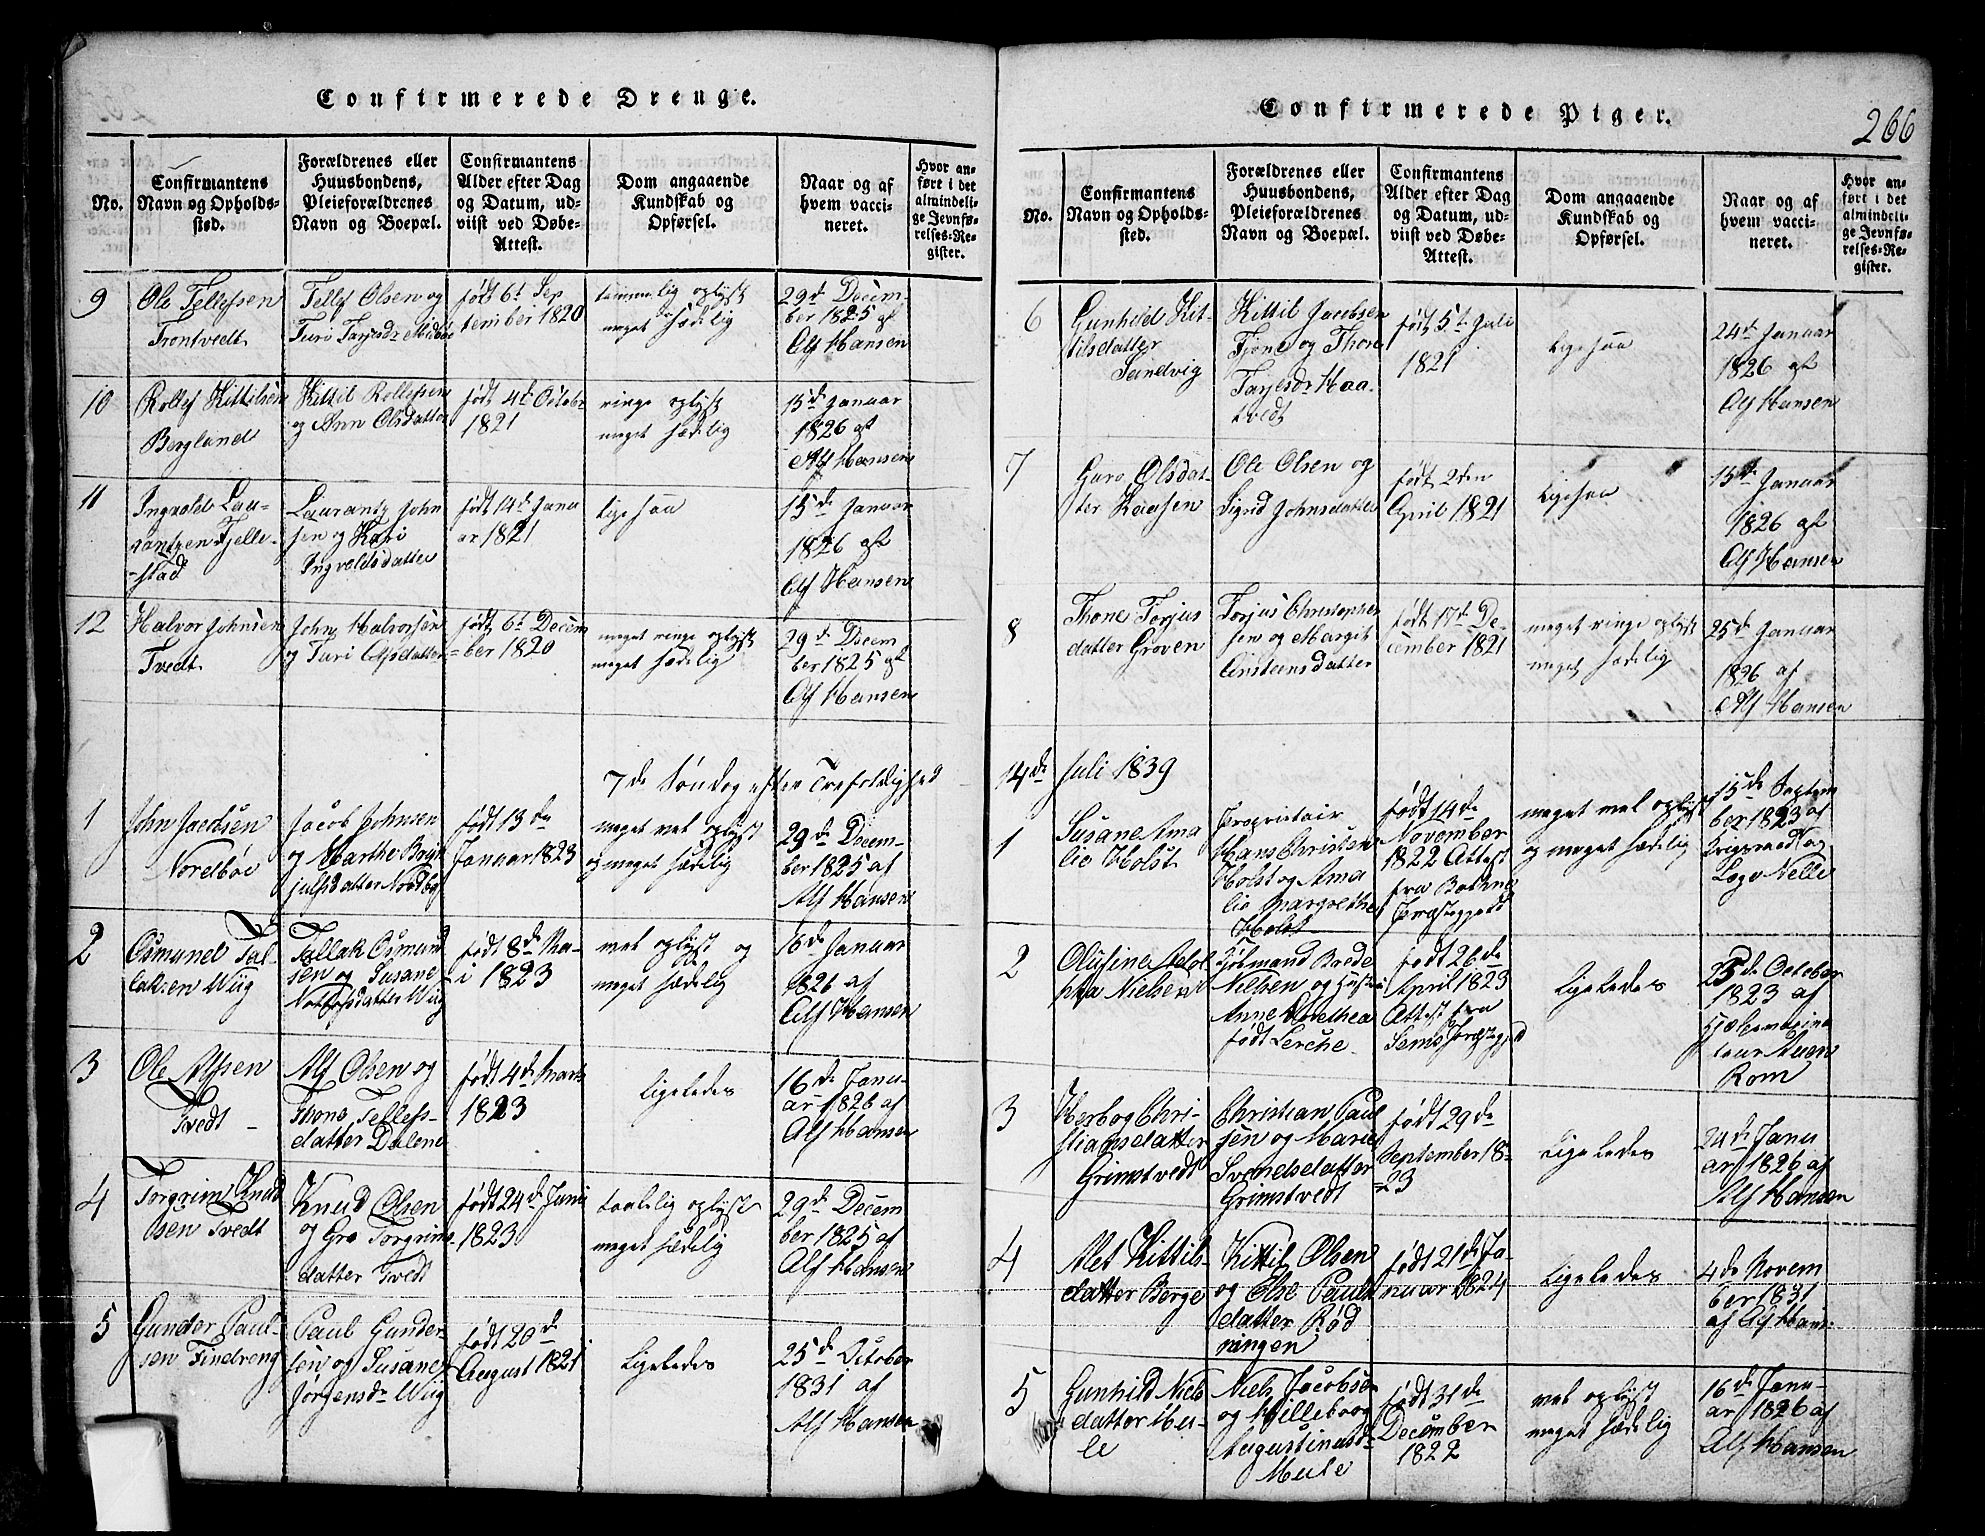 Confirmerede Drenge.
No.
Confirmantens
Navn og Opholds-
sted.
Forældrenes eller
Huusbondens,
Pleieforældrenes
Navn og Boepæl.
Confirmantens
Alder efter Dag
og Datum, ud-
viist ved Døbe-
Attest.
Dom angaaende
Kundskab og
Opførsel.
Naar og af
hvem vacci-
neret.
Hvor an-
ført i det
almindeli-
ge Jevnfø-
relses-Re-
gister.
9
Ole Tellefsen
Trontvedt
Tellef Olsen og
Turo Tarjesdr Midbøe
født 6t Sep
tember 1820
temmelig oplyst
meget sædelig
29d Decem-
ber 1825 af
Alf Hansen
10
Rollef Kittilsen
Bergland
Kittil Rollefsen
og Ann Olsdatter
født 4d Octobr
1821
ringe oplyst
meget sædelig
15d Januar
1826 af
Alf Hansen
11
Ingvald Lau-
rantzen Fjelle-
stad
Laurantz John
sen og Kari
Ingvaldsdatter
født 14d Janu
ar 1821
lige saa
15d Januar
1826 af
Alf Hansen
12
Halvor Johnsen
Tvedt
John Halvorsen
og Turi Olsdatter
født 6t Decem
=ber 1820
meget ringe oplyst
meget sædelig
29d Decem
ber 1825 af
Alf Hansen
7de Søndag efter Trefoldighed
1
John Jacobsen
Nordbøe
Jacob Johnsen
og Marthe Bryn
julfsdatter Nordbø
født 13de
Januar 1823
meget vel oplyst
og meget sædelig
29de Decem-
ber 1825 af
Alf Hansen
2
Osmund Tal-
laksen Wiig
Tallak Osmund
sen og Susane
Nottofsdatter Wiig
født 8de Ma-
i 1823
vel oplyst og
meget sædelig
16de Januar
1826 af
Alf Hansen
3
Ole Alfsen
Tvedt
Alf Olsen og
Thone Tellefs-
datter Dalene
født 4de Marts
1823
ligeledes
16de Janu-
ar 1826 af
Alf Hansen
4
Torgrim Knud
Osen Tvedt
Knud Olsen
og Gro Torgrims-
datter Tvedt
født 24de Juni
1823
taalelig oplyst
meget sædelig
29de Decem
ber 1825 af
Alf Hansen
5
Gunder Paul-
sen Findreng
Paul Gunder-
sen og Susane
Jørgensdr Wiig
født 20de
August 1821
ligeledes
25de October
1831 af
Alf Hansen
Confirmerede Piger.
266
No.
Confirmantens
Navn og Opholds-
sted.
Forældrenes eller
Huusbondens,
Pleieforældrenes
Navn og Boepæl.
Confirmantens
Alder efter Dag
og Datum, ud-
viist ved Døbe-
Attest.
Dom angaaende
Kundskab og
Opførsel.
Naar og af
hvem vacci-
neret.
Hvor an-
ført i det
almindeli-
ge Jevnfø-
relses-Re-
gister.
6
Gunhild Kit-
tilsdatter
Sandvig
Kittil Jacobsen
Fjone og Thone
Tarjesdr Haa-
tvedt
født 5t Juli
1821
lige saa
24d Januar
1826 af
Alf Hansen
7
Guro Olsdat-
ter Kaasen
Ole Olsen og
Sigrid Johnsdatter
født 2den
April 1821
ligesaa
15de Januar
1826 af
Alf Hansen
8
Thone Torjus
datter Groven
Torjus Christophers
sen og Margit
Einsteensdatter
født 17d De-
cember 1821
meget ringe oplyst
meget sædelig
25d Januar
1826 af
Alf Hansen
14de Juli 1839
1
Susane Ama
lie Holst
Proprietair
Hans Christian
Holst og Ama
lie Margrethe
Holst
født 14de
November
1822 Attest
fra
Præstegjæld
meget vel oplyst
og meget sædelig
15de Septem
ber 1823 af
Krigsraad og
Læge Nelle
2
Olufine Adol
pha Nielsen
Kjøbmand Brede
Nielsen og Hustru
Anne Dorothea
født Lerche
født 26de
April 1823
Attest fra
Sems Præstegjæld
ligeledes
25de October
1823 af
Rom
3
Herbog Chri-
stiansdatter
Grimstvedt
Christian Paul
sen og Marie
Svendsdatter
Grimstvedt
født 29de
September 18-
=23
ligeledes
24de Janu
ar 1826 af
Alf Hansen
4
Alet Kittils-
datter Berge
Kittil Olsen
og Else Pauls
datter Rød
ningen
født 21de Ja-
nuar 1824
ligeledes
4de Novem
ber 1831
af Alf Hans.
5
Gunhild Niels
datter Meu-
le
Niels Jacobsen
og Hilleborg
Augustinusdr
Meule
født 31de
December
1822
vel oplyst
meget sædelig
16de Janu-
ar 1826 af
Alf Hansen